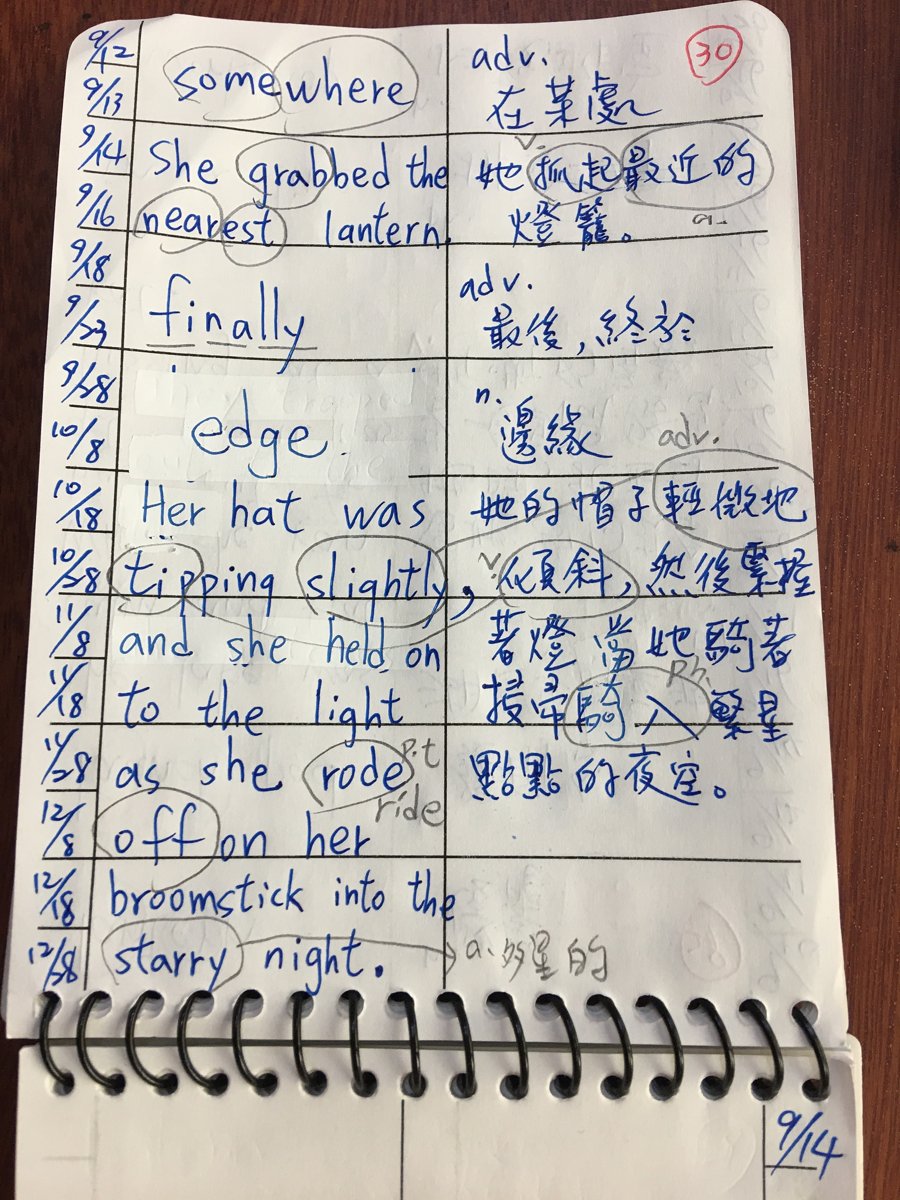 30
9/12
somewhere
adv.
9/13
在某處
9/14
She grabbed the
v.
她抓起最近的
9/16
nearest lantern.
燈籠。
a.
9/18
adv.
9/23
finally
最後,終於
9/28
n.
edge
邊緣
10/8
adv.
10/18
Her hat was
她的帽子輕微地
10/28
tipping slightly,
v.
傾斜,然後緊握
11/8
and she held on
著燈 當她騎著
11/18
to the light
掃帚騎入繁星
ph.
11/28
as she rode
p.t
點點的夜空。
ride
12/8
off on her
12/18
broomstick into the
12/28
starry night.
a. 多星的
9/14